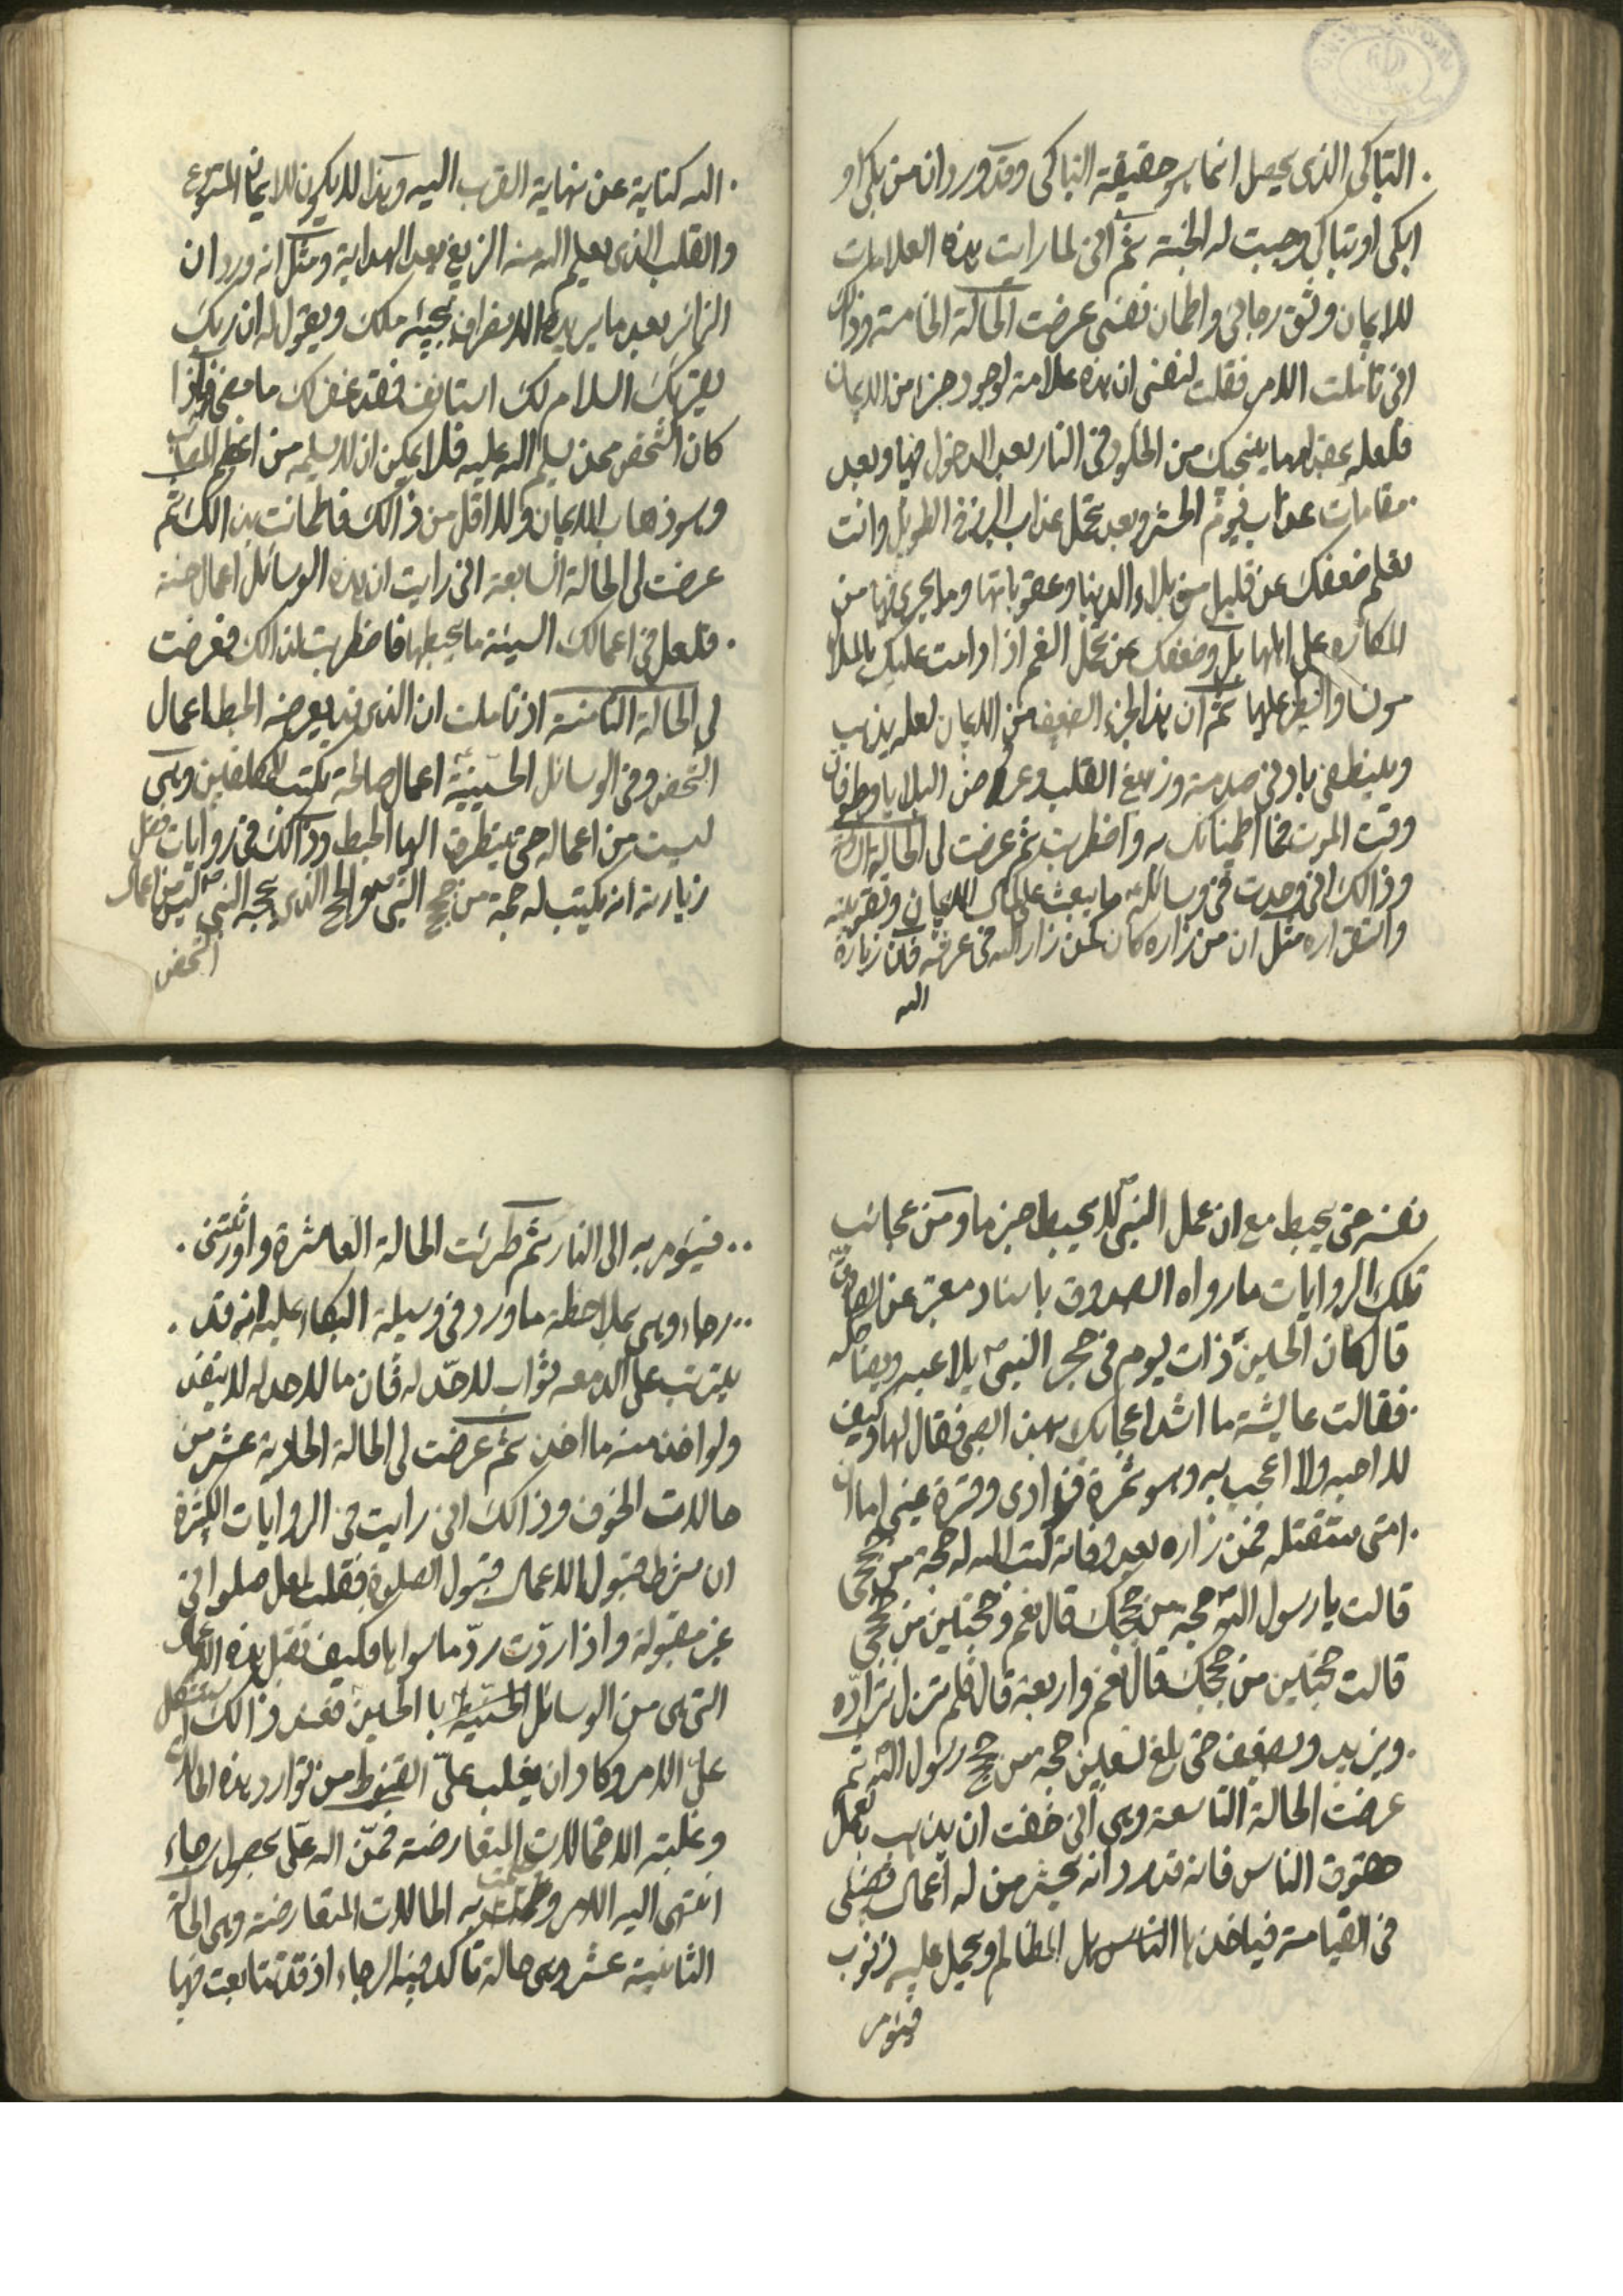 التباكى الذى يحصل انما هو حقيقة التباكى وقد ورد ان من بكى او
ابكى او تباكى وجبت له الجنة ثم انى لما رايت هذه العلامات
للايمان وثق رجائى واطمان نفسى عرضت الحالة الخامسة وذلك
انى تاملت الامر فقلت لنفسى ان هذه علامة لوجود جزء من الايمان
فلعله بعضها ينجيك من الخلود فى النار بعد الدخول فيها وبعد
مقامات عذاب يوم الحشر وبعد تحمل عذاب البرزخ الطويل وانت
تعلم ضعفك عن قليل من بلاء الدنيا وعقوباتها وما يجرى فيها من
المكاره على اهلها بل وضعفك عن تحمل النعم اذا دامت عليك
ثم ان هذا الجزء الضعيف من الايمان لعله يذهب
وينطفى بادنى صدمة وزيغ القلب وعروض البلايا
وقت الموت فما اطمينانك به واضطربت ثم عرضت لى الحالة السادسة
وذالك انى وجدت فى وسائله ما يبعث على كمال الايمان وتقويته
واستقراره مثل ان من زاره كان كمن زار الله فى عرشه فان زيارة
الله
الله كناية عن نهاية القرب اليه وهذا لا يكون للايمان المستودع
والقلب الذى يعلم الله منه الزيغ بعد الهداية ومثل انه ورد ان
الزائر بعد ما يريد الانصراف يجيئه ملك ويقول له ان ربك
يقرئك السلام لك استانف فقد غفر لك ما مضى فاذا
كان الشخص ممن يسلم الله عليه فلا يمكن ان لا يسلمه من اعظم المصائب
وهو ذهاب الايمان ولا اقل من ذالك فاطمانت بذالك ثم
عرضت لى الحالة السابعة انى رايت ان هذه الوسائل اعمال حسنة
فلعل فى اعمالك السيئة ما يحبطها فاضطربت لذالك فعرضت
لى الحالة الثامنة اذ تاملت ان الذى قد يعرضه الحبط اعمال
الشخص وفى الوسائل الحسينية اعمال صالحة تكتب للمكلفين وهى
ليست من اعماله حتى يتطرق اليها الحبط وذالك فى روايات فضل
زيارته انه يكتب له حجة من حجج النبى هو الحج الذى يحجه النبى ليس من اعمال
الشخص
نفسه حتى يحبط مع ان عمل النبى لا يحبط جزما ومن عجائب
تلك الروايات ما رواه الصدوق باسناد معتبر عن الصادق
قال كان الحسين ذات يوم فى حجر النبى يلاعبه ويضاحكه
فقالت عايشة ما اشد اعجابك بهذا الصبى فقال لها وكيف
لا احبه ولا اعجب به وهو ثمرة فؤادى وقرة عينى اما ان
امتى ستقتله فمن زاره بعد وفاته كتب الله له حجة من حججى
قالت يا رسول الله حجة من حججك قال نعم وحجتين من حججى
قالت حجتين من حججك قال نعم واربعة قال فلم تزل تزاده
ويزيد ويضعف حتى بلغ تسعين حجة من حجج رسول الله ثم
عرضت الحالة التاسعة وهى انى خفت ان يذهب بالعمل
حقوق الناس فانه قد ورد انه يحشر من له اعمال فضلى
فى القيامة فياخذ بها الناس اهل المظالم ويحمل عليه ذنوب
فيؤمر
فيؤمر به الى النار ثم طرئت الحالة العاشرة واورثتنى
رجاء وهى بملاحظة ما ورد فى وسيلة البكاء عليه انه قد
يترتب على الدمعه ثواب لا حد له فان ما لا حد له لا ينفد
ولو اخذ منه ما اخذ ثم عرضت لى الحالة الحادية عشر من
حالات الخوف وذالك انى رايت فى الروايات الكثيرة
ان شرط قبول الاعمال قبول الصلوة فقلت لعل صلواتى
غير مقبولة واذا ردت رد ما سواها فكيف تقبل هذه الاعمال
التى هى من الوسائل الحسينية يا الحسين فعند ذالك استشكل
على الامر وكاد ان يغلب على القنوط من توارد هذه الحالات
وغلبته الاحتمالات المتعارضة فمن الله على بحصول رجاء
انتهى اليه الامر وختمت به الحالات المتعارضة وهى الحالة
الثانية عشر وهى حالة تاكد فيه الرجاء اذ قد تتابعت فيها